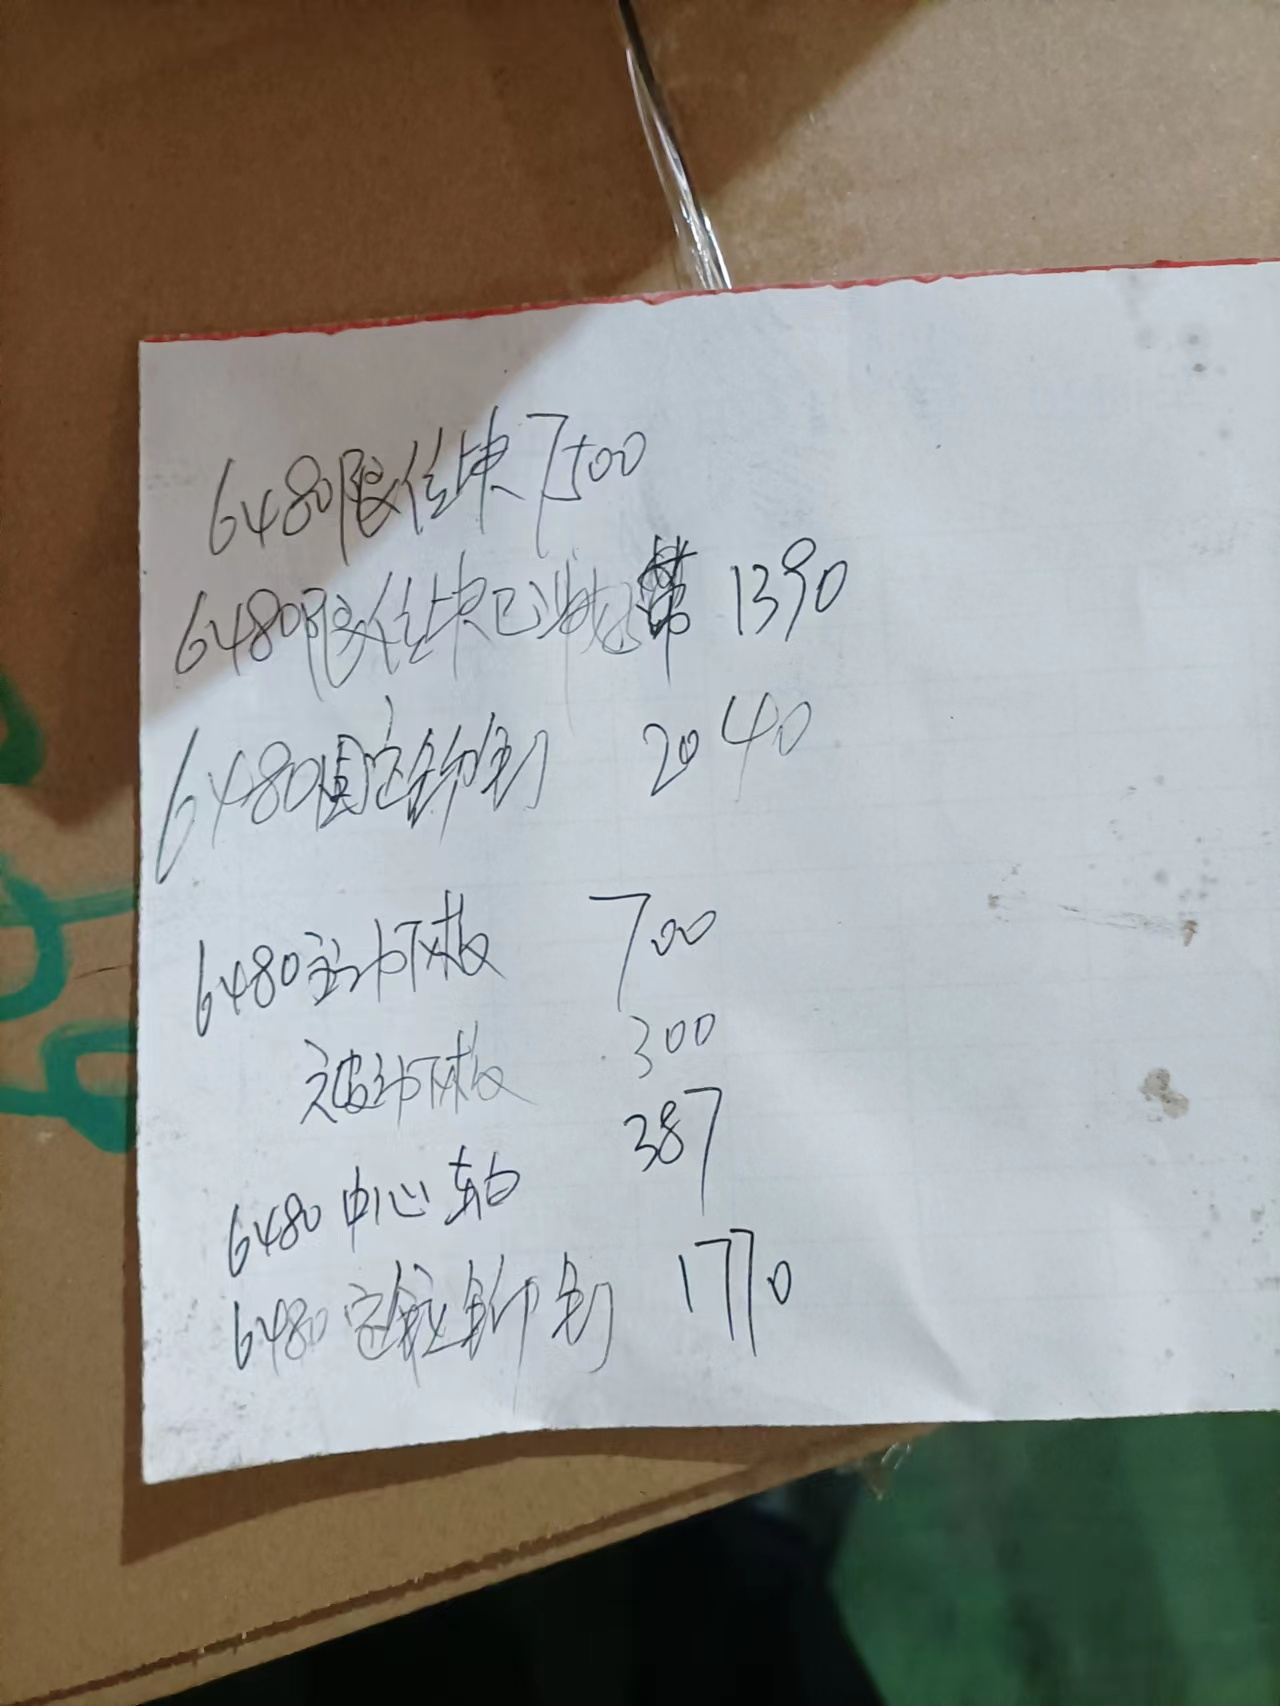 6480限位块7500
6480限位块已 带 1390
6480固定铆钉 2040
6480主动下板 700
被动下板 300
6480中心轴 387
6480定铰铆钉 1770